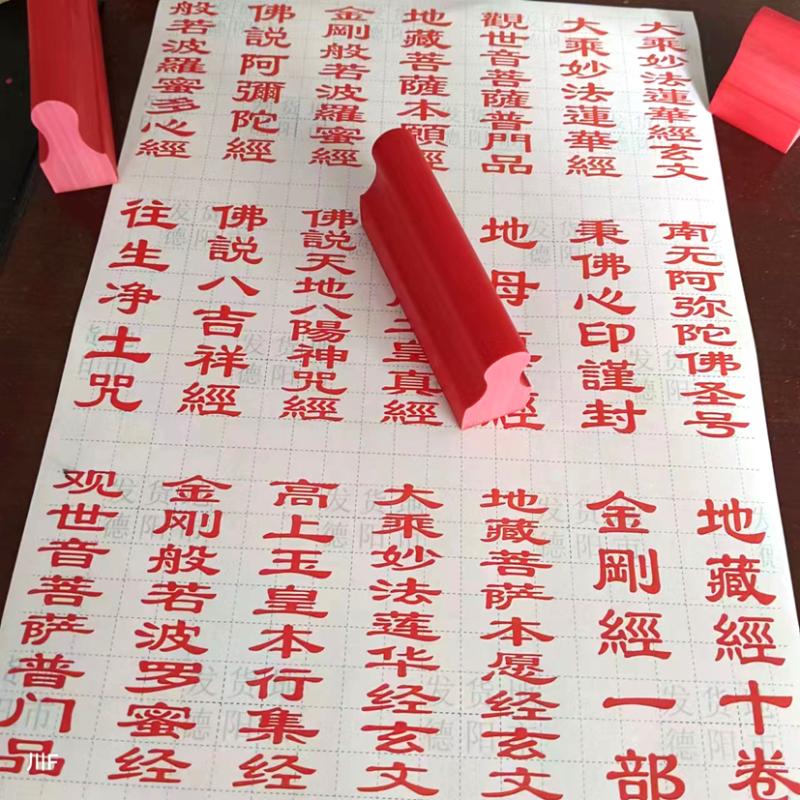 大乘妙法蓮華經玄文
大乘妙法蓮華經
觀世音菩薩普門品
地藏菩薩本願經
金剛般若波羅蜜經
佛說阿彌陀經
般若波羅蜜多心經
南无阿弥陀佛圣号
秉佛心印謹封
地母真經
皇真經
佛說天地八陽神咒經
佛說八吉祥經
往生净土咒
地藏經十卷
金剛經一部
地藏菩萨本愿经玄文
大乘妙法莲华经玄文
高上玉皇本行集经
金刚般若波罗蜜经
观世音菩萨普门品
发货地
德阳市
川F